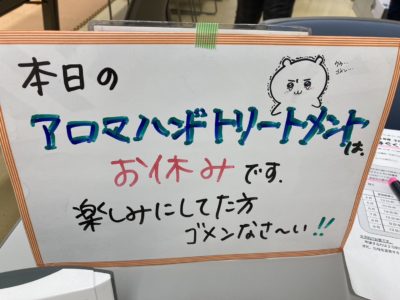 本日の
アロマハンドトリートメントは、
お休みです.
楽しみにしてた方
ゴメンなさ〜い!!